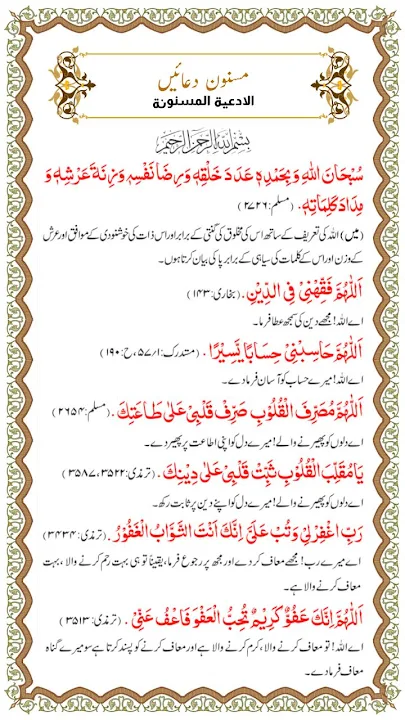 مسنون دعائیں
الادعية المسنونة
بسم الله الرحمن الرحيم
سُبْحَانَ اللهِ وَبِحَمْدِهٖ عَدَدَ خَلْقِهٖ وَرِضَا نَفْسِهٖ وَزِنَةَ عَرْشِهٖ وَ
مِدَادَ كَلِمَاتِهٖ. (مسلم: ۲۷۲۶)
(میں) اللہ کی تعریف کے ساتھ اس کی مخلوق کی گنتی کے برابر اور اس ذات کی خوشنودی کے موافق اور عرش
کے وزن اور اس کے کلمات کی سیاہی کے برابر پاکی بیان کرتا ہوں۔
اَللّٰهُمَّ فَقِّهْنِيْ فِي الدِّيْنِ. (بخاری: ۱۴۳)
اے اللہ! مجھے دین کی سمجھ عطا فرما۔
اَللّٰهُمَّ حَاسِبْنِيْ حِسَابًا يَّسِيْرًا. (متدرک: ۵۷/۱، ح: ۱۹۰)
اے اللہ! میرے حساب کو آسان فرما دے۔
اَللّٰهُمَّ مُصَرِّفَ الْقُلُوْبِ صَرِّفْ قَلْبِيْ عَلٰى طَاعَتِكَ. (مسلم: ۲۶۵۴)
اے دلوں کو پھیرنے والے! میرے دل کو اپنی اطاعت پر پھیر دے۔
يَا مُقَلِّبَ الْقُلُوْبِ ثَبِّتْ قَلْبِيْ عَلٰى دِيْنِكَ. (ترمذی: ۳۵۲۲، ۳۵۸۷)
اے دلوں کو پھیرنے والے! میرے دل کو اپنے دین پر ثابت رکھ۔
رَبِّ اغْفِرْ لِيْ وَتُبْ عَلَيَّ اِنَّكَ اَنْتَ التَّوَّابُ الْغَفُوْرُ. (ترمذی: ۳۴۳۴)
اے میرے رب! مجھے معاف کر دے اور مجھ پر رجوع فرما، یقیناً تو ہی بہت رحم کرنے والا، بہت
معاف کرنے والا ہے۔
اَللّٰهُمَّ اِنَّكَ عَفُوٌّ كَرِيْمٌ تُحِبُّ الْعَفْوَ فَاعْفُ عَنِّيْ. (ترمذی: ۳۵۱۳)
اے اللہ! تو معاف کرنے والا، کرم کرنے والا ہے اور معاف کرنے کو پسند کرتا ہے سو میرے گناہ
معاف فرما دے۔